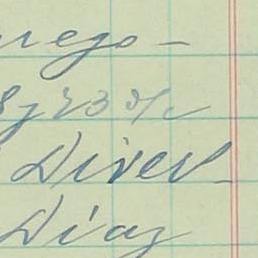 rego-
8 y 23 d/c
Diver-
Díaz